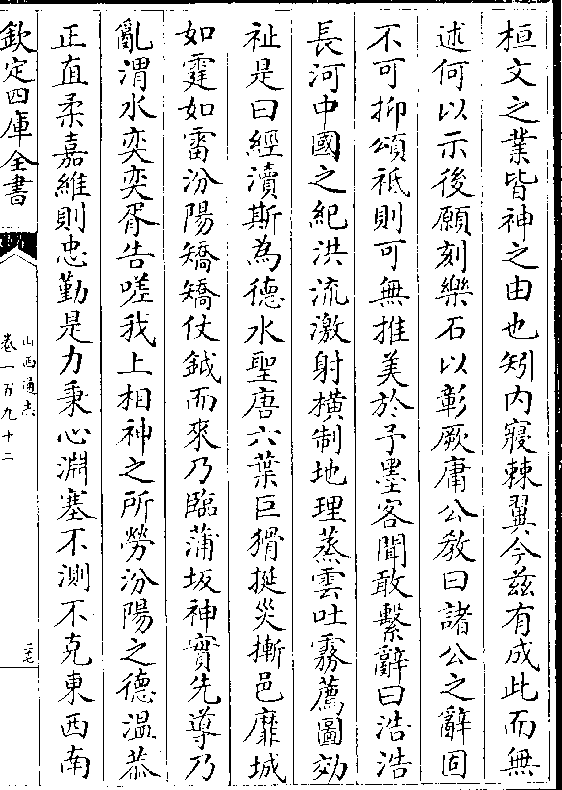 桓文之業皆神之由也矧內寢棘翼今茲有成此而無
述何以示後願刻樂石以彰厥庸公敎曰諸公之辭固
不可抑頌祗則可無推美於予墨客聞敢繫辭曰浩浩
長河中國之紀洪流激射橫制地理蒸雲吐霧薦圖効
祉是曰經瀆斯為德水聖唐六葉巨猾挺災摲邑靡城
如霆如雷汾陽矯矯仗鉞而來乃臨蒲坂神實先導乃
亂渭水奕奕胥告嗟我上相神之所勞汾陽之德溫恭
正直柔嘉維則忠勤是力秉心淵塞不測不克東西南
欽定四庫全書
山西通志
卷一百九十二
二七